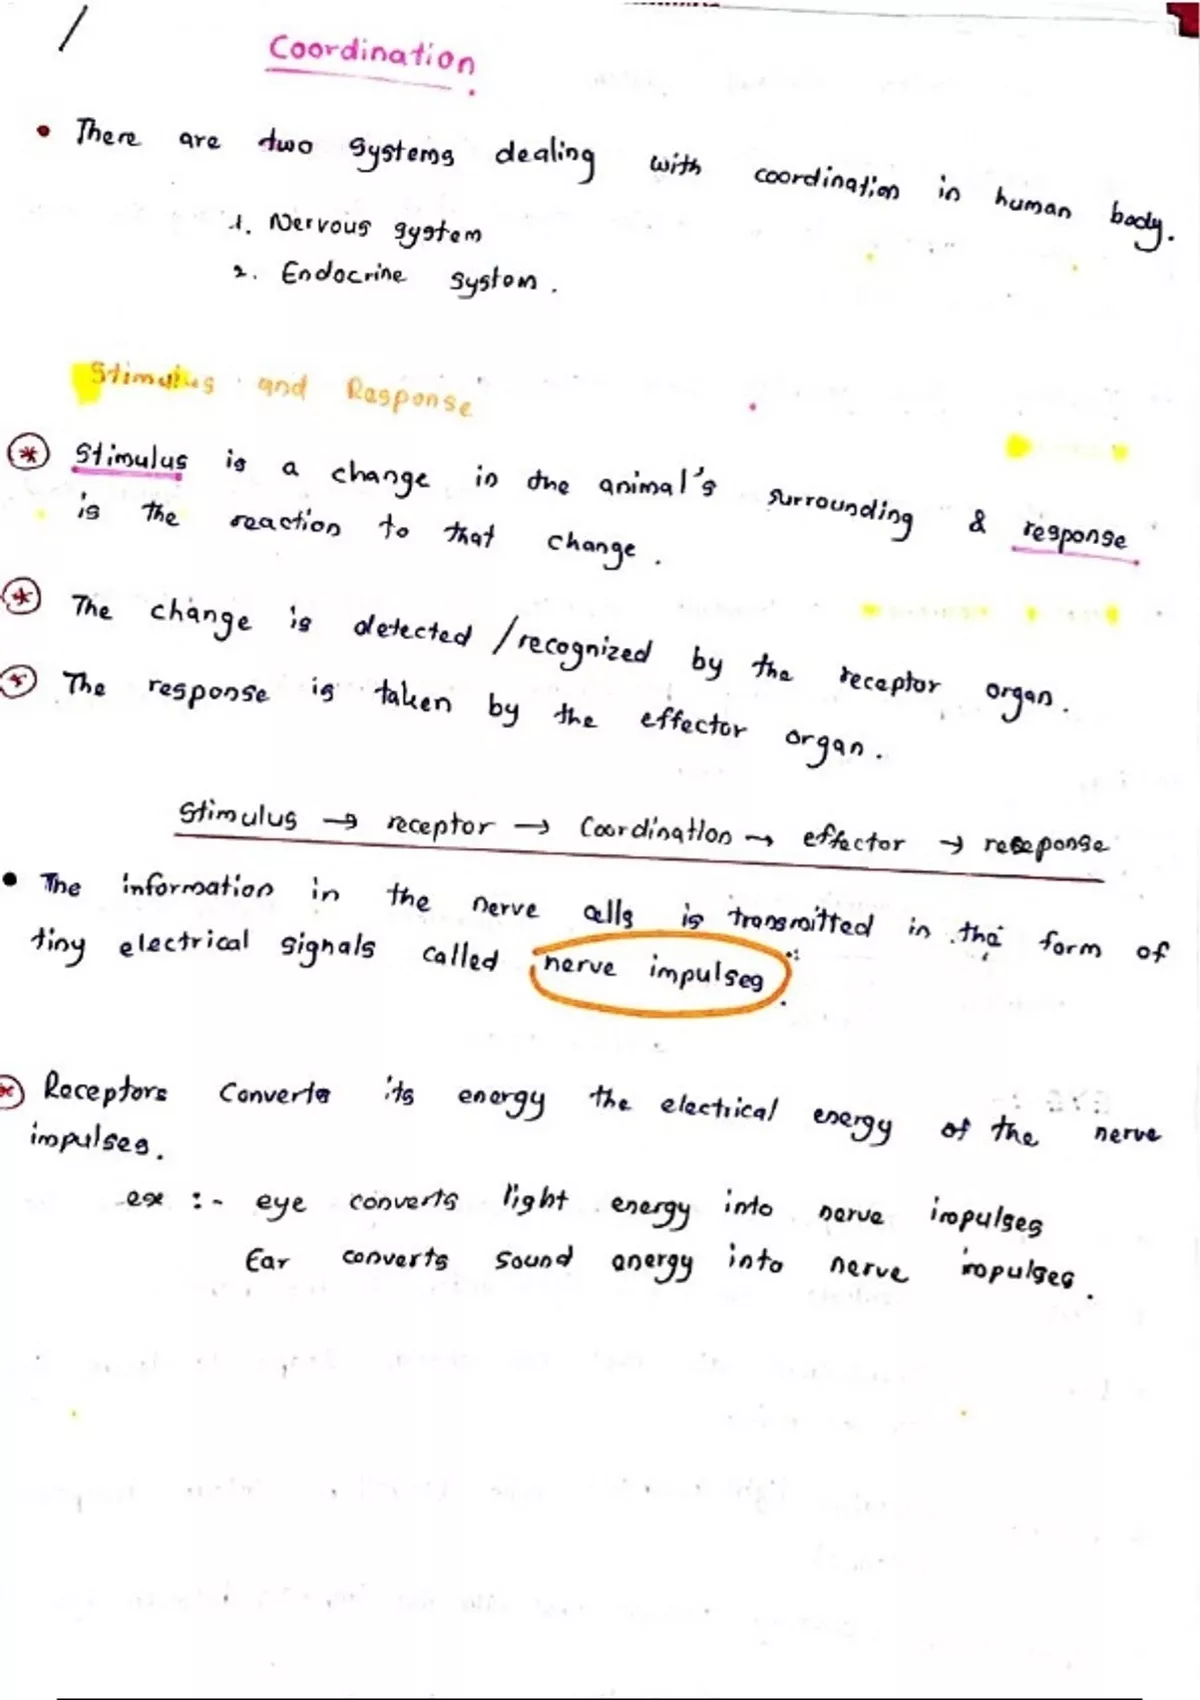 Coordination
• There are two systems dealing with coordination in human body.
1. Nervous system
2. Endocrine system.
Stimulus and Response
* Stimulus is a change in the animal's surrounding & response
is the reaction to that change.
* The change is detected / recognized by the receptor organ.
* The response is taken by the effector organ.
Stimulus → receptor → Coordination → effector → response
• The information in the nerve cells is transmitted in the form of
tiny electrical signals called nerve impulses.
* Receptors Converts its energy the electrical energy of the nerve
impulses.
ex :- eye converts light energy into nerve impulses
Ear converts sound energy into nerve impulses.